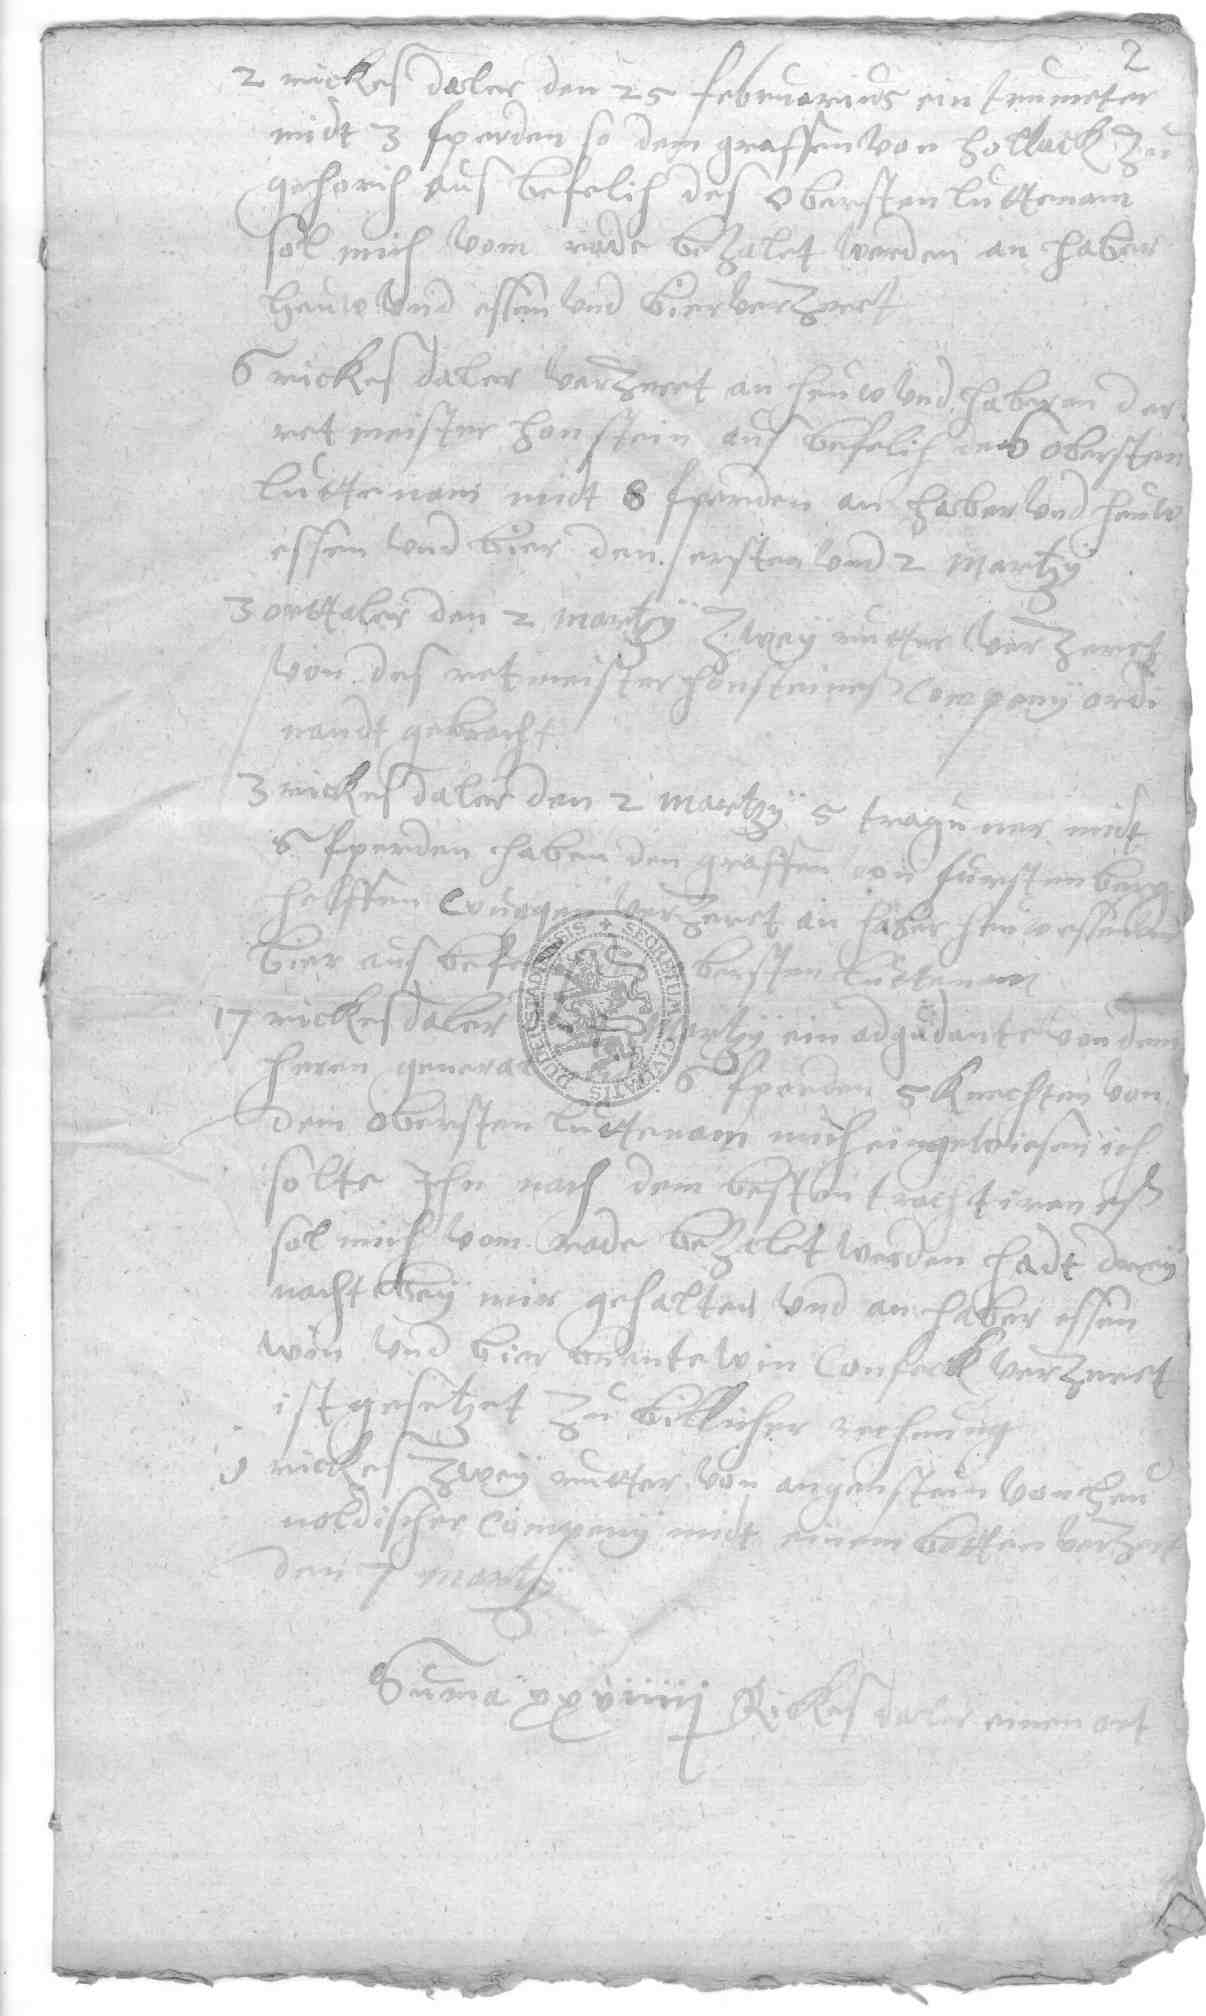 2
2 rickes daler den 25 februarius ein trumeter
midt 3 fperden so dem graffen von Hollack zu
gehorich aus befelich des obersten luttenam
sol mich vom rade bezalet werden an haber
heuw und essen und bier verzeret
6 rickes daler verzeret an heuw und haberen der
retmeister honstein aus befelich des obersten
luttenam midt 8 fperden an haber und heuw
essen und bier den ersten und 2 martzÿ
3 orttaler den 2 martzÿ zweÿ rutter verzeret
von des retmeister honsteines Companÿ ordi
nandt gebracht
3 rickes daler den 2 martzÿ 5 traguner midt
5 fperden haben den graffen von furstenberg
helffen verzeret an haber heuw essen und
bier aus obersten luttenam
17 rickes daler ein adgudante von dem
heren general 6 fperden 5 knechten von
dem obersten luttenam mich eingewiesen ich
solte Ihn nach dem besten trachtiren es
sol mich vom rade bezalet werden hadt dreÿ
nacht beÿ mir gehalten und an haber essen
win und bier brantewin Confeck verzeret
ist gesetzet zu billicher rechnung
1 rickes zweÿ rutter von angenstein von
noldischer Companÿ midt einem botten verzert
den 7 martzÿ
Summa xxviiiij Rickes daler einen ort
SECRETUM CIVITATIS DUDERSTADENSIS